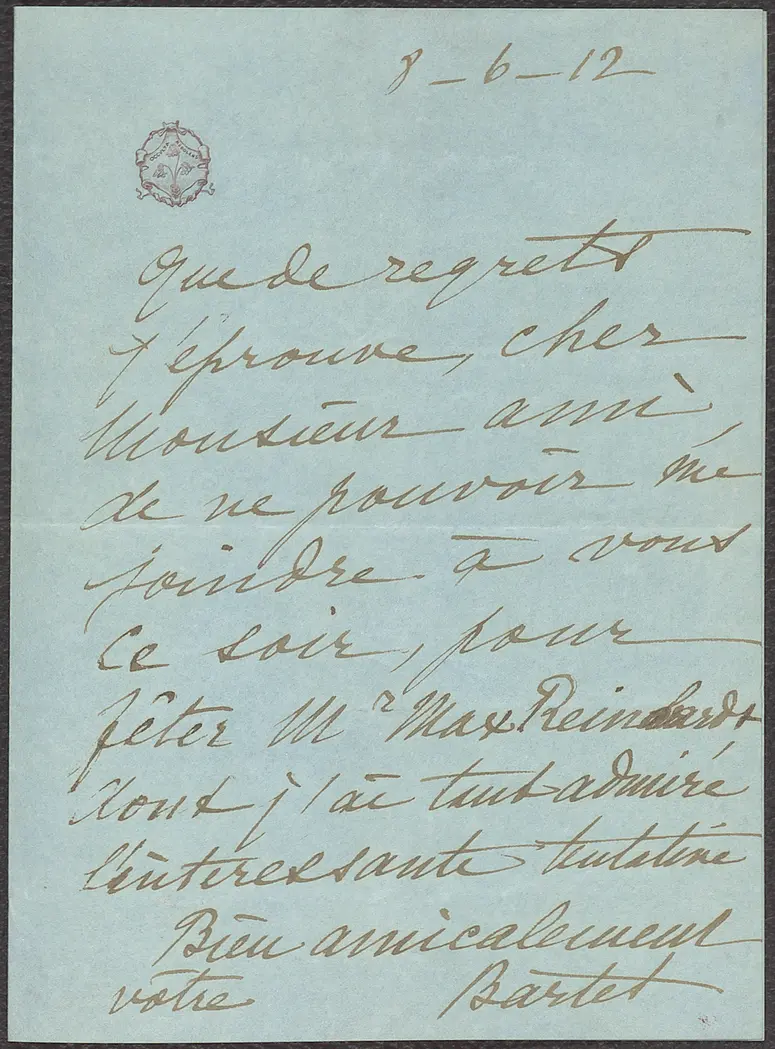 8-6-12
Que de regrets
j'éprouve, cher
Monsieur ami,
de ne pouvoir me
joindre à vous
ce soir, pour
fêter Mr Max Reinhardt
dont j'ai tant admiré
l'intéressante tentative
Bien amicalement
vôtre Bartet